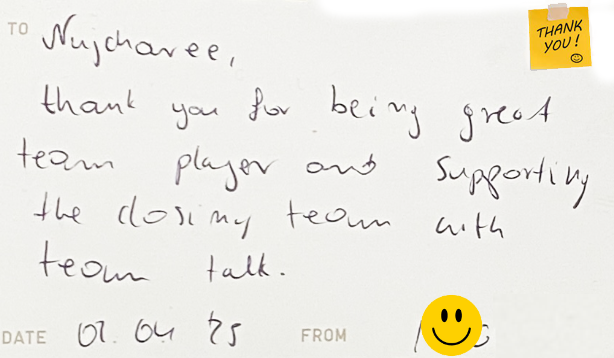 THANK
YOU!
TO Nujcharee,
thank you for being great
team player and supporting
the closing team with
team talk.
DATE 01.04 '25 FROM